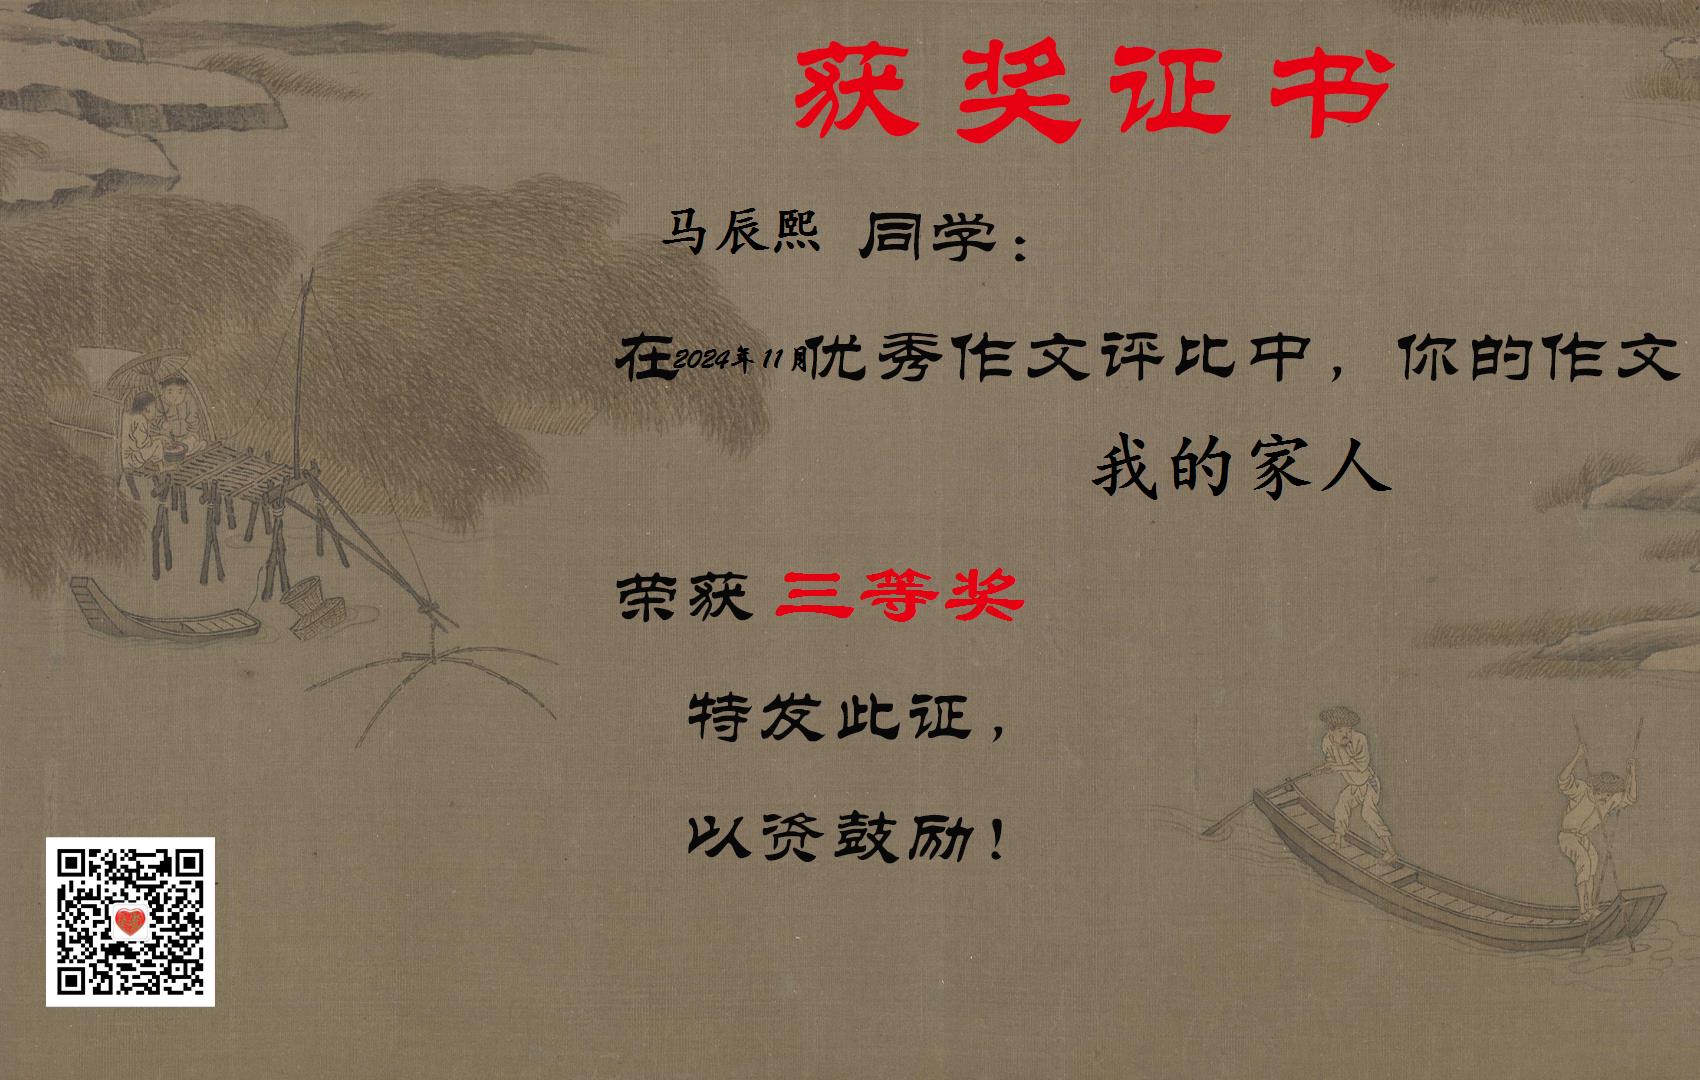 获奖证书
马辰熙 同学：
在2024年11月优秀作文评比中，你的作文
我的家人
荣获 三等奖
特发此证，
以资鼓励！